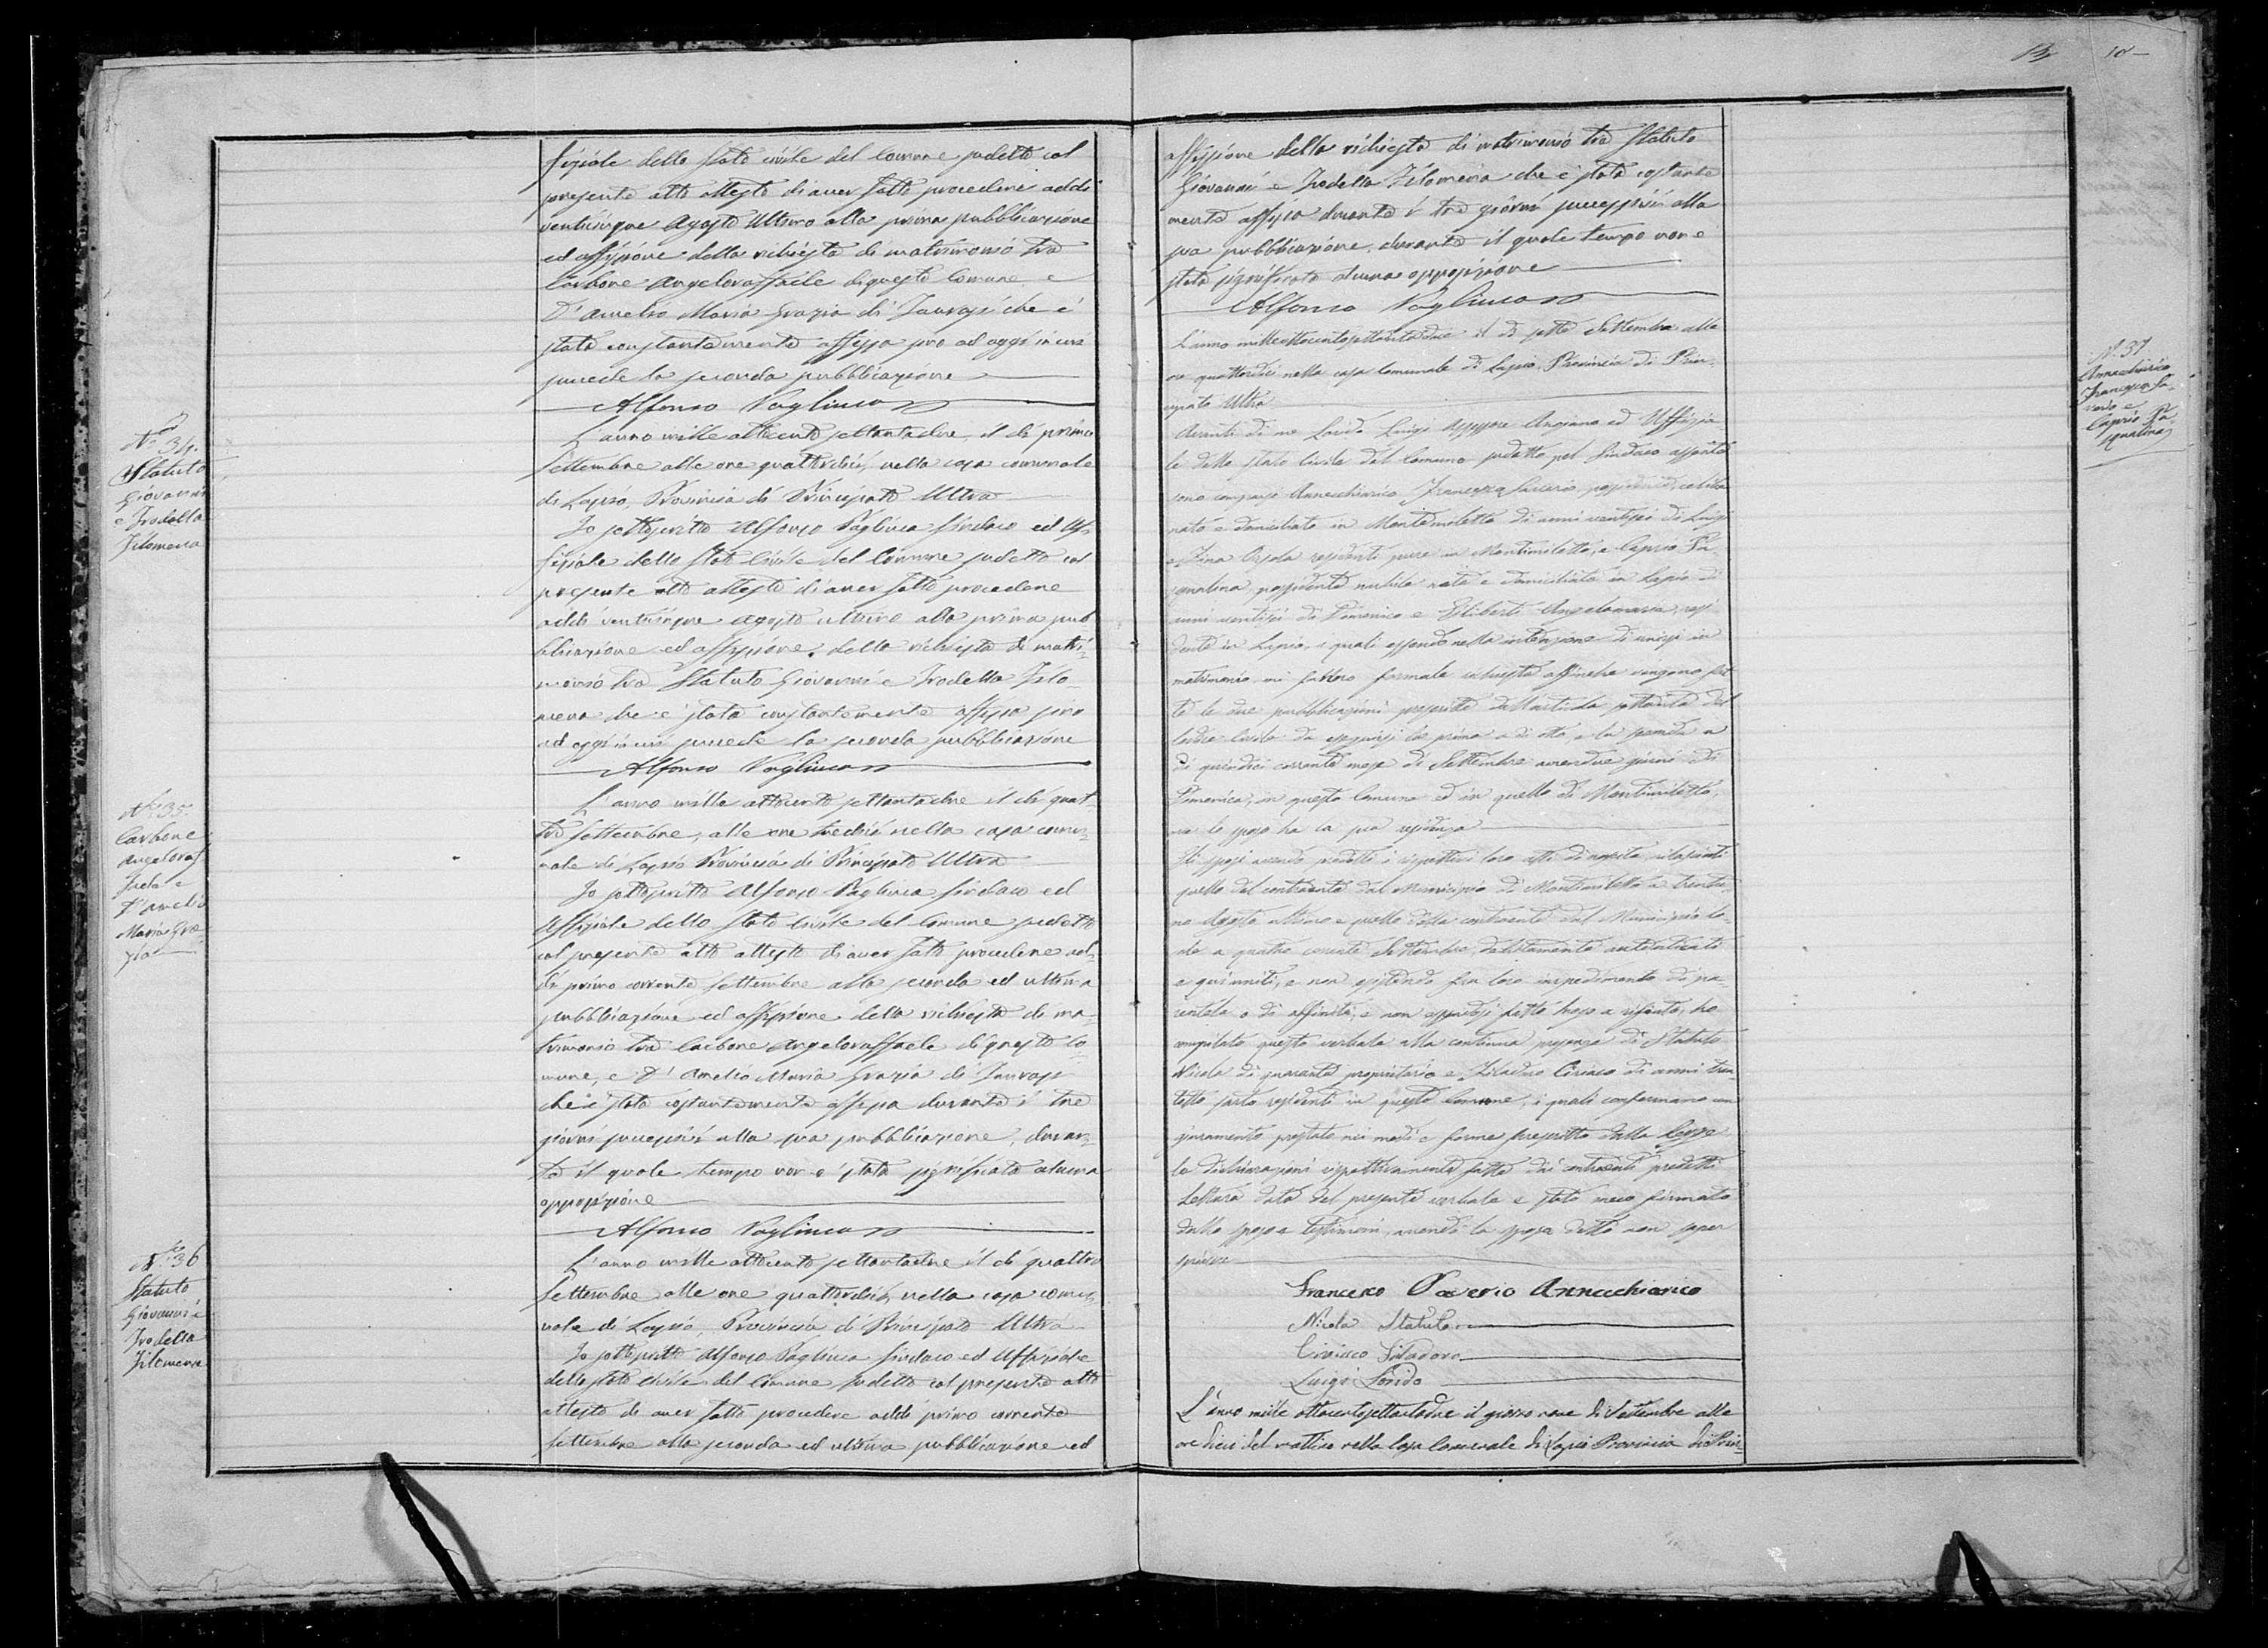 ficiale dello Stato civile del Comune sudetto col
presente atto attesto di aver fatto procedere addì
venticinque Agosto ultimo alla prima pubblicazione
ed affissione della richiesta di matrimonio tra
Carbone Angeloraffaele di questo Comune e
D'Amelio Maria Grazia di Taurasi che è
stata constantemente affissa sino ad oggi in cui
succede la seconda pubblicazione
Alfonso Pagliuca
N.º 34.
Statuto
Giovanni
e Irodella
Filomena
L'anno mille ottocento settantadue, il dì primo
Settembre alle ore quattordici, nella casa comunale
di Lapio, Provincia di Principato Ultra
Io sottoscritto Alfonso Pagliuca Sindaco ed Uf-
ficiale dello Stato Civile del Comune sudetto col
presente atto attesto di aver fatto procedere
addì venticinque Agosto ultimo alla prima pub
blicazione ed affissione della richiesta di matri-
monio tra Statuto Giovanni e Irodella Filo-
mena che è stata constantemente affissa sino
ad oggi in cui succede la seconda pubblicazione
Alfonso Pagliuca
N.º 35.
Carbone
Angeloraf
faele e
D'Amelio
Maria Gra-
zia
L'anno mille ottocento settantadue il dì quat-
tro Settembre, alle ore tredici nella casa comu-
nale di Lapio Provincia di Principato Ultra
Io sottoscritto Alfonso Pagliuca Sindaco ed
Uffiziale dello Stato Civile del Comune sudetto
col presente atto attesto di aver fatto procedere ad-
dì primo corrente Settembre alla seconda ed ultima
pubblicazione ed affissione della richiesta di ma-
trimonio tra Carbone Angeloraffaele di questo Co-
mune, e D'Amelio Maria Grazia di Taurasi
che è stata costantemente affissa durante i tre
giorni successivi alla sua pubblicazione, duran-
te il quale tempo non è stata significata alcuna
opposizione
Alfonso Pagliuca
N.º 36
Statuto
Giovanni e
Irodella
Filomena
L'anno mille ottocento settantadue il dì quattro
Settembre alle ore quattordici, nella casa comu-
nale di Lapio, Provincia di Principato Ultra
Io sottoscritto Alfonso Pagliuca Sindaco ed Uffiziale
dello Stato Civile del Comune sudetto col presente atto
attesto di aver fatto procedere addì primo corrente
Settembre alla seconda ed ultima pubblicazione ed
affissione della richiesta di matrimonio tra Statuto
Giovanni e Irodella Filomena che è stata costante
mente affissa durante i tre giorni successivi alla
sua pubblicazione, durante il quale tempo non è
stata significata alcuna opposizione
Alfonso Pagliuca
N. 37
Annecchiarico
Francesco Sa-
verio e
Caprio Pa-
squalina
L'anno milleottocentosettantadue il dì sette Settembre alle
ore quattordici nella casa Comunale di Lapio Provincia di Prin-
cipato Ultra
Avanti di me Lorido Luigi Assessore Anziano ed Uffizia-
le dello Stato Civile del Comune sudetto pel Sindaco assente
sono comparsi Annecchiarico Francesco Saverio possidente, celibe
nato e domiciliato in Montemiletto di anni ventisei di Luigi
e Zina Orsola residenti pure in Montemiletto, e Caprio Pa-
squalina, possidente nubile nata e domiciliata in Lapio di
anni ventisei di Domenico e Feliberti Angelamaria, resi
denti in Lapio, i quali essendo nella intenzione di unirsi in
matrimonio mi fattono formale richiesta affinchè vengono fat
te le due pubblicazioni prescritte dall'articolo settanta del
Codice Civile da eseguirsi la prima a dì otto, e la seconda a
dì quindici corrente mese di Settembre amendue giorni di
Domenica, in questo Comune ed in quello di Montemiletto,
ove lo sposo ha la sua residenza
Gli sposi avendo prodotti i rispettivi loro atti di nascita, rilasciati
quello del contraente dal Municipio di Montemiletto a trentu-
no Agosto ultimo e quello della contraente dal Municipio lo-
cale a quattro corrente Settembre, debitamente autenticati
e qui uniti, e non esistendo fra loro impedimento di pa-
rentela o di affinità, e non essendosi fatto luogo a rifiuto, ho
compilato questo verbale alla continua presenza di Statuto
Nicola di quaranta proprietario e Filadoro Ciriaco di anni tren-
totto sarto residenti in questo Comune, i quali confermano con
giuramento prestato nei modi e forme prescritte dalla Legge
le dichiarazioni rispettivamente fatte dai contraenti predetti
Lettura data del presente verbale è stato meco firmato
dallo sposo e testimoni, avendo la sposa detto non saper
scrivere
Francesco Saverio Annecchiarico
Nicola Statuto
Ciriaco Filadoro
Luigi Lorido
L'anno mille ottocentosettantadue il giorno nove di Settembre alle
ore dieci del mattino nella Casa Comunale di Lapio Provincia di Prin-